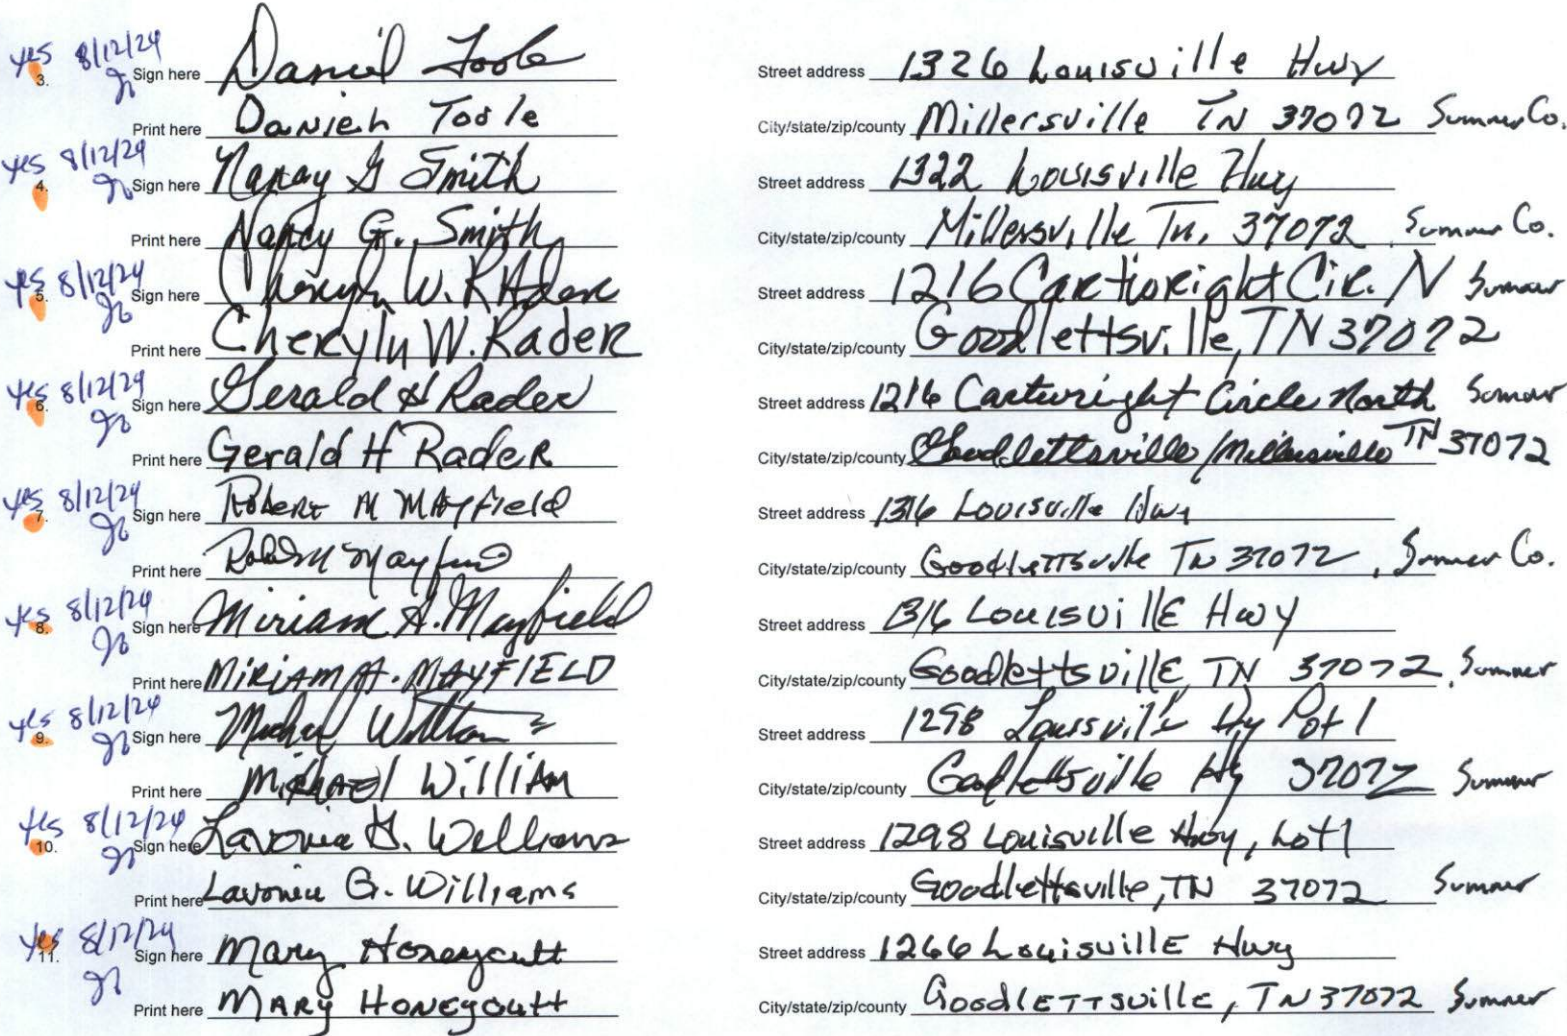 yes 8/12/24
3. Sign here Daniel Toole Street address 1326 Louisville Hwy
Print here Daniel Toole City/state/zip/county Millersville TN 37072 Sumner Co.
yes 8/12/24
4. Sign here Nancy G Smith Street address 1322 Louisville Hwy
Print here Nancy G. Smith City/state/zip/county Millersville Tn. 37072 Sumner Co.
yes 8/12/24
5. Sign here Cheryln W. Rader Street address 1216 Cartwright Cir. N Sumner
Print here Cheryln W. Rader City/state/zip/county Goodlettsville, TN 37072
yes 8/12/24
6. Sign here Gerald H Rader Street address 1216 Cartwright Circle North Sumner
Print here Gerald H Rader City/state/zip/county Goodlettsville/Millersville TN 37072
yes 8/12/24
7. Sign here Robert M MAyfield Street address 1316 Louisville Hwy
Print here Robert M Mayfield City/state/zip/county Goodlettsville TN 37072, Sumner Co.
yes 8/12/24
8. Sign here Miriam A. Mayfield Street address 1316 Louisville Hwy
Print here MiRiAM A. MAYFIELD City/state/zip/county Goodlettsville, TN 37072, Sumner
yes 8/12/24
9. Sign here Michael Street address 1298 Louisville Hy Lot 1
Print here Michael William City/state/zip/county Goodlettsville Hy 37072 Sumner
yes 8/12/24
10. Sign here Lavonia G. Williams Street address 1298 Louisville Hwy, Lot 1
Print here Lavonia G. Williams City/state/zip/county Goodlettsville, TN 37072 Sumner
yes 8/12/24
11. Sign here Mary Honeycutt Street address 1266 Louisville Hwy
Print here MARY HONEYCUTT City/state/zip/county Goodlettsville, TN 37072 Sumner